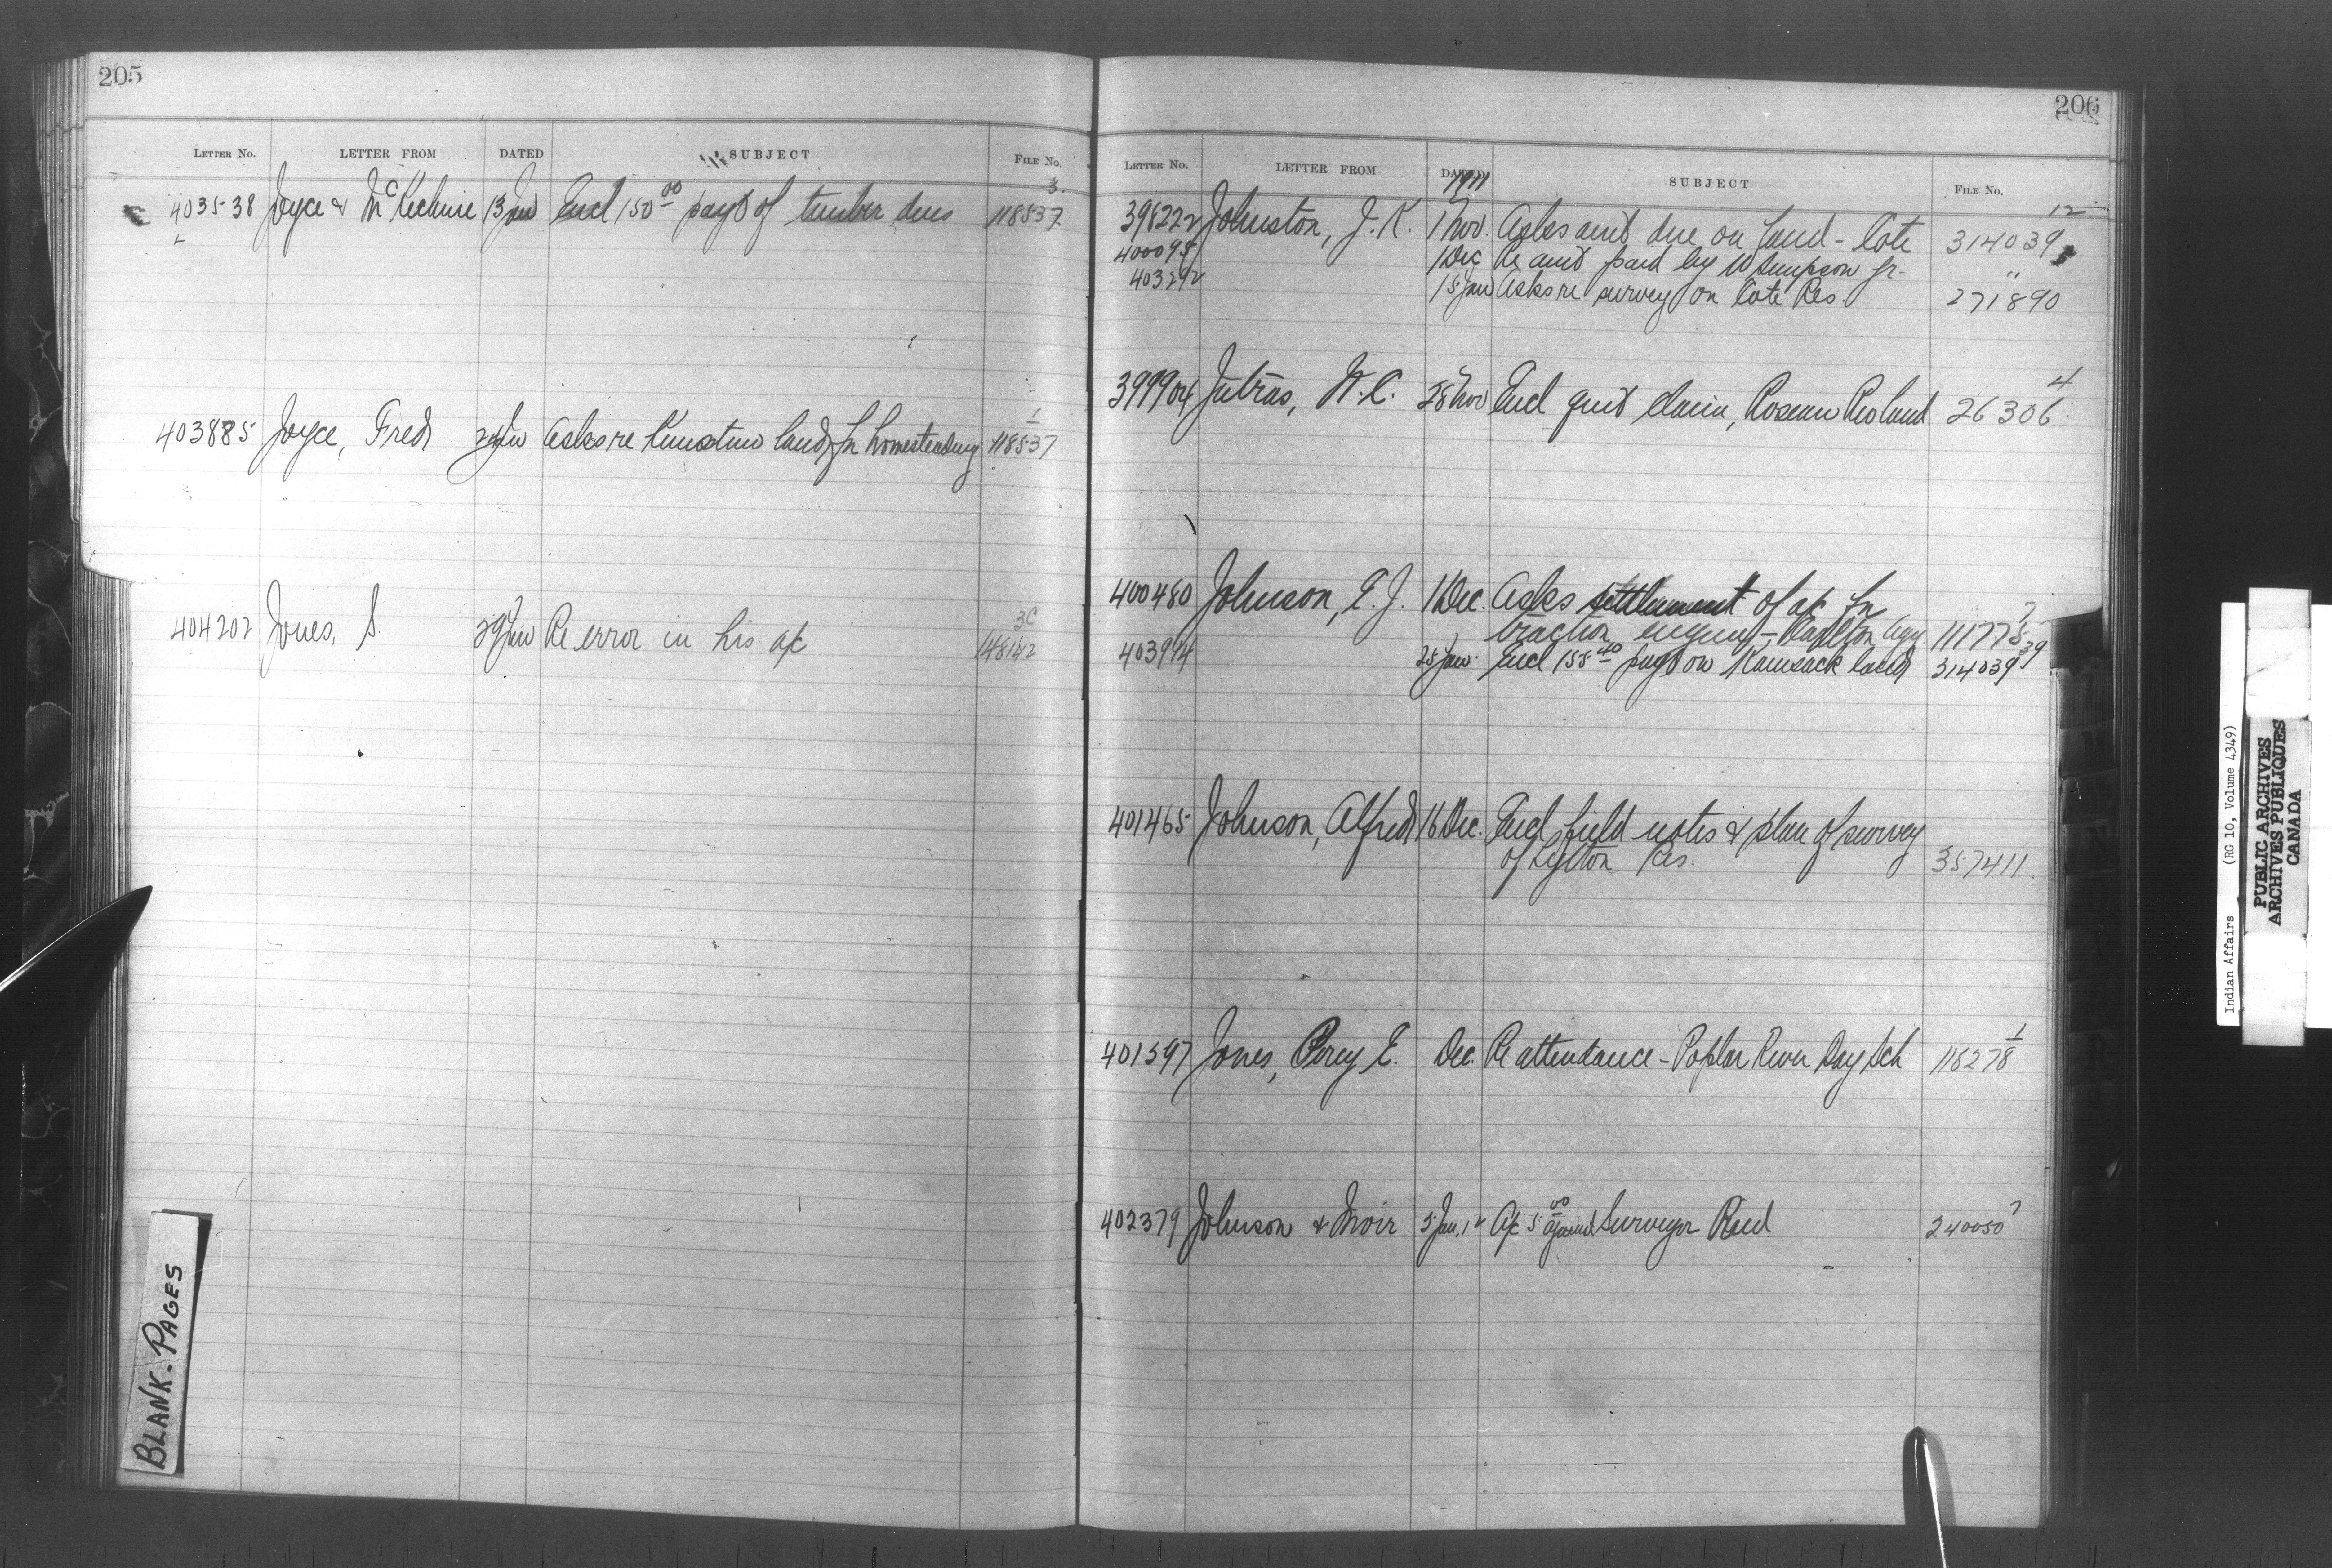 205
LETTER NO. LETTER FROM DATED SUBJECT FILE No.
3.
403538 Joyce & McKechnie 13 Jan Encl 150 00 payt of timber dues 118537
403885 Joyce, Fred Jan Asks re land for homesteading 1 118537
404202 Jones, S. 29 Jan Re error in his a/c 3C 148142
BLANK-PAGES
206
LETTER NO. LETTER FROM DATED SUBJECT FILE No.
1911
12
398222 Johnston, J.K. 1 Nov. Asks amt due on land - Cote 314039
400095 1 Dec Re amt paid by W Simpson for "
403292 15 Jan Asks re survey on Cote Res 271890
4
399904 Jutras, 28 Nov Encl quit claim, Roseau Res land 26306
400480 Johnson, E.J. 1 Dec. Asks settlement of a/c for
traction engine - Carlton Agy 111778
403994 25 Jan. Encl 155 40 payt on Kamsack land 314039 39
401465 Johnson, Alfred 16 Dec. Encl field notes & plan of survey
of Lytton Res. 357411
1
401597 Jones, Percy E. Dec. Re attendance - Poplar River Day Sch 118278
402379 Johnson & Moir 5 Jan. 12 A/c 5 00 against Surveyor Reid 240050
Indian Affairs (RG 10, Volume 4349)
PUBLIC ARCHIVES
ARCHIVES PUBLIQUES
CANADA